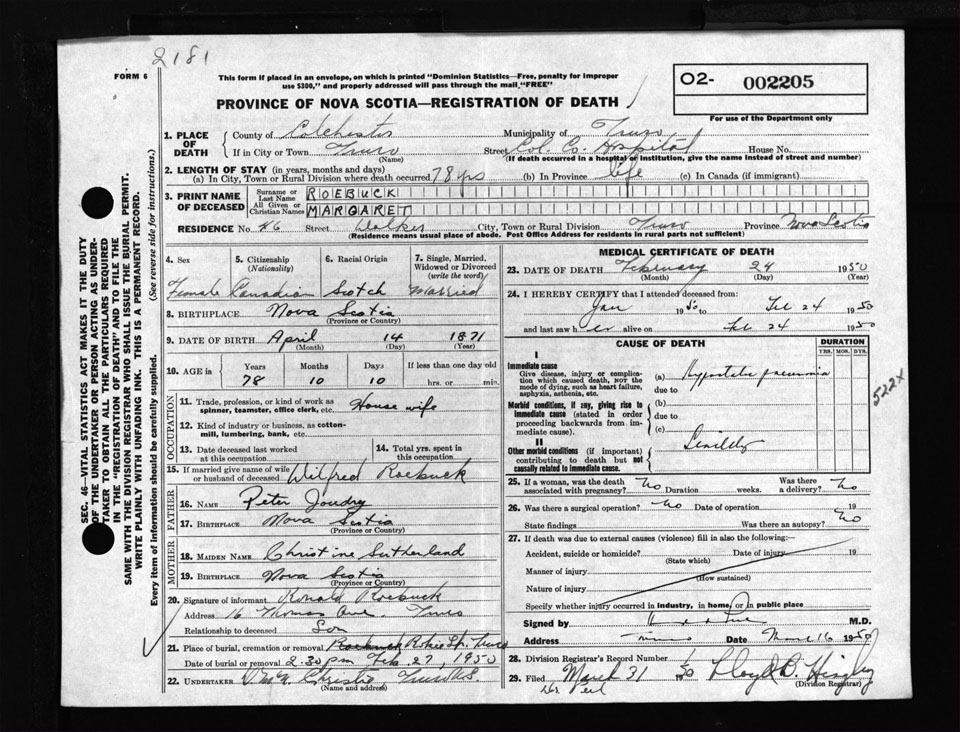 2181
FORM 6
This form if placed in an envelope, on which is printed "Dominion Statistics—Free, penalty for improper
use $300," and properly addressed will pass through the mail "FREE"
PROVINCE OF NOVA SCOTIA—REGISTRATION OF DEATH
O2- 002205
For use of the Department only
1. PLACE OF DEATH
County of Colchester Municipality of Truro
If in City or Town Truro Street Col. Co. Hospital House No.
(Name) (If death occurred in a hospital or institution, give the name instead of street and number)
2. LENGTH OF STAY (in years, months and days)
(a) In City, Town or Rural Division where death occurred 78 yrs (b) In Province life (c) In Canada (if immigrant)
3. PRINT NAME OF DECEASED
Surname or Last Name ROEBUCK
All Given or Christian Names MARGARET
RESIDENCE No. 46 Street Walker City, Town or Rural Division Truro Province Nova Scotia
(Residence means usual place of abode. Post Office Address for residents in rural parts not sufficient)
4. Sex 5. Citizenship (Nationality) 6. Racial Origin 7. Single, Married, Widowed or Divorced (write the word)
Female Canadian Scotch Married
8. BIRTHPLACE Nova Scotia
(Province or Country)
9. DATE OF BIRTH April 14 1871
(Month) (Day) (Year)
10. AGE in Years Months Days If less than one day old
78 10 10 hrs. or min.
OCCUPATION
11. Trade, profession, or kind of work as
spinner, teamster, office clerk, etc. House wife
12. Kind of industry or business, as cotton-
mill, lumbering, bank, etc.
13. Date deceased last worked
at this occupation
14. Total yrs. spent in
this occupation
15. If married give name of wife
or husband of deceased Wilfred Roebuck
FATHER
16. NAME Peter Joudry
17. BIRTHPLACE Nova Scotia
(Province or Country)
MOTHER
18. MAIDEN NAME Christine Sutherland
19. BIRTHPLACE Nova Scotia
(Province or Country)
20. Signature of informant Ronald Roebuck
Address 16 Thomas Ave. Truro
Relationship to deceased Son
21. Place of burial, cremation or removal Roebuck Truro
Date of burial or removal 2.30 pm Feb. 27, 1950
22. UNDERTAKER Christie, Truro N.S.
(Name and address)
MEDICAL CERTIFICATE OF DEATH
23. DATE OF DEATH February 24 1950
(Month) (Day) (Year)
24. I HEREBY CERTIFY that I attended deceased from:
Jan 1950 to Feb 24 1950
and last saw her alive on Feb 24 1950
CAUSE OF DEATH
DURATION
YRS. MOS. DYS.
I
Immediate cause
Give disease, injury or complication which caused death, NOT the
mode of dying, such as heart failure,
asphyxia, asthenia, etc.
(a) Hypostatic pneumonia
due to
Morbid conditions, if any, giving rise to
immediate cause (stated in order
proceeding backwards from immediate cause).
(b)
due to
(c)
II
Other morbid conditions (if important)
contributing to death but not
causally related to immediate cause.
Senility
522X
25. If a woman, was the death
associated with pregnancy? No Duration weeks. Was there
a delivery? No
26. Was there a surgical operation? No Date of operation 19
State findings Was there an autopsy? No
27. If death was due to external causes (violence) fill in also the following:—
Accident, suicide or homicide? Date of injury 19
(State which)
Manner of injury
(How sustained)
Nature of injury
Specify whether injury occurred in industry, in home, or in public place
Signed by M.D.
Address Truro Date Mar 16 1950
28. Division Registrar's Record Number
29. Filed March 31 50 Lloyd B.
(Division Registrar)
SEC. 46—VITAL STATISTICS ACT MAKES IT THE DUTY
OF THE UNDERTAKER OR PERSON ACTING AS UNDERTAKER TO OBTAIN ALL THE PARTICULARS REQUIRED
IN THE "REGISTRATION OF DEATH" AND TO FILE THE
SAME WITH THE DIVISION REGISTRAR WHO SHALL ISSUE THE BURIAL PERMIT.
WRITE PLAINLY WITH UNFADING INK. THIS IS A PERMANENT RECORD.
Every item of information should be carefully supplied. (See reverse side for instructions.)